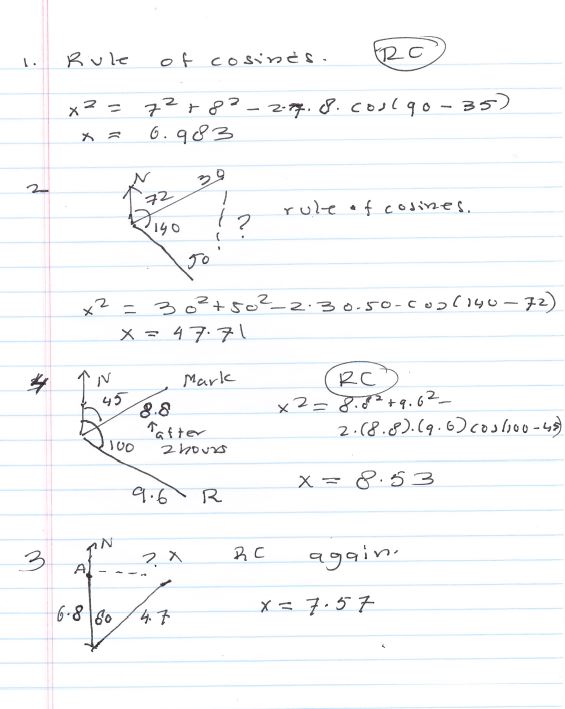 1. Rule of cosines. RC
x² = 7² + 8² - 2·7·8·cos(90 - 35)
x = 6.983
2
N
72
30
140
?
50
rule of cosines.
x² = 30² + 50² - 2·30·50·cos(140 - 72)
x = 47.71
4
N
45
Mark
8.8
↑after
2 hours
100
9.6
R
RC
x² = 8.8² + 9.6² -
2·(8.8)·(9.6) cos(100 - 45)
x = 8.53
3
N
A
? x
6.8
60
4.7
RC again.
x = 7.57